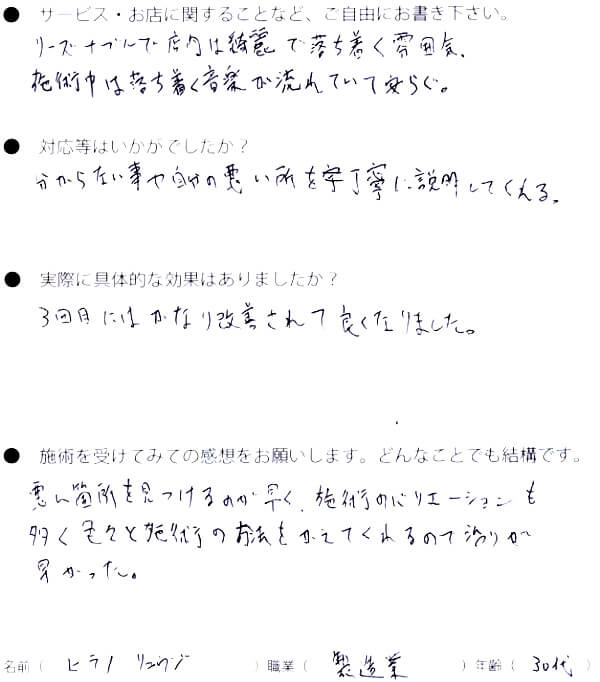 ● サービス・お店に関することなど、ご自由にお書き下さい。
リーズナブルで店内は綺麗で落ち着く雰囲気、
施術中は落ち着く音楽が流れていて安らぐ。
● 対応等はいかがでしたか？
分からない事や自分の悪い所を丁寧に説明してくれる。
● 実際に具体的な効果はありましたか？
3回目にはかなり改善されて良くなりました。
● 施術を受けてみての感想をお願いします。どんなことでも結構です。
悪い箇所を見つけるのが早く、施術のバリエーションも
多く色々と施術の方法をかえてくれるので治りが
早かった。
名前（ ヒラノ リュウジ ）職業（ 製造業 ）年齢（ 30代 ）